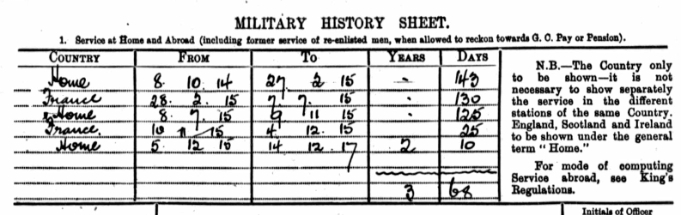 MILITARY HISTORY SHEET.
1. Service at Home and Abroad (including former service of re-enlisted men, when allowed to reckon towards G. C. Pay or Pension).
COUNTRY FROM TO YEARS DAYS
Home 8. 10. 14 27 2 15 - 143
France 28. 2. 15 7. 7. 15 . 130
Home 8. 7. 15 9 11 15 . 125
France. 10 11 15 4. 12. 15 25
Home 5 12 15 14 12. 17 2 10
3 68
N.B.—The Country only
to be shown—it is not
necessary to show separately
the service in the different
stations of the same Country.
England, Scotland and Ireland
to be shown under the general
term "Home."
For mode of computing
Service abroad, see King's
Regulations.
Initials of Officer